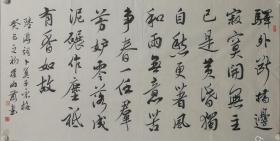 驛外斷橋邊
寂寞開無主
已是黃昏獨
自愁更著風
和雨無意苦
爭春一任群
芳妒零落成
泥碾作塵祗
有香如故
陸游詞卜算子詠梅
癸巳之初